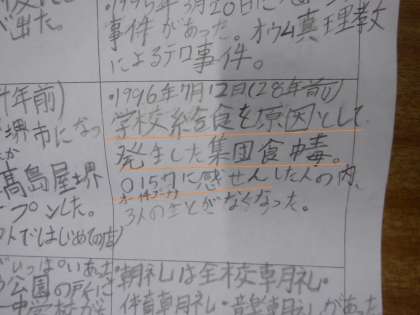 が出た。
・1995年3月20日に
事件があった。オウム真理教
によるテロ事件。
年前)
堺市になっ
高島屋堺
プンした。
ではじめての店)
・1996年7月12日(28年前)
学校給食を原因として
発生した集団食中毒。
O157に感せんした人の内、
オーイチゴーナナ
3人の生とがなくなった。
がいっぱいあった
公園の所に
中学校が
・朝礼は全校専月礼・
体育専月礼・音楽専月礼があった